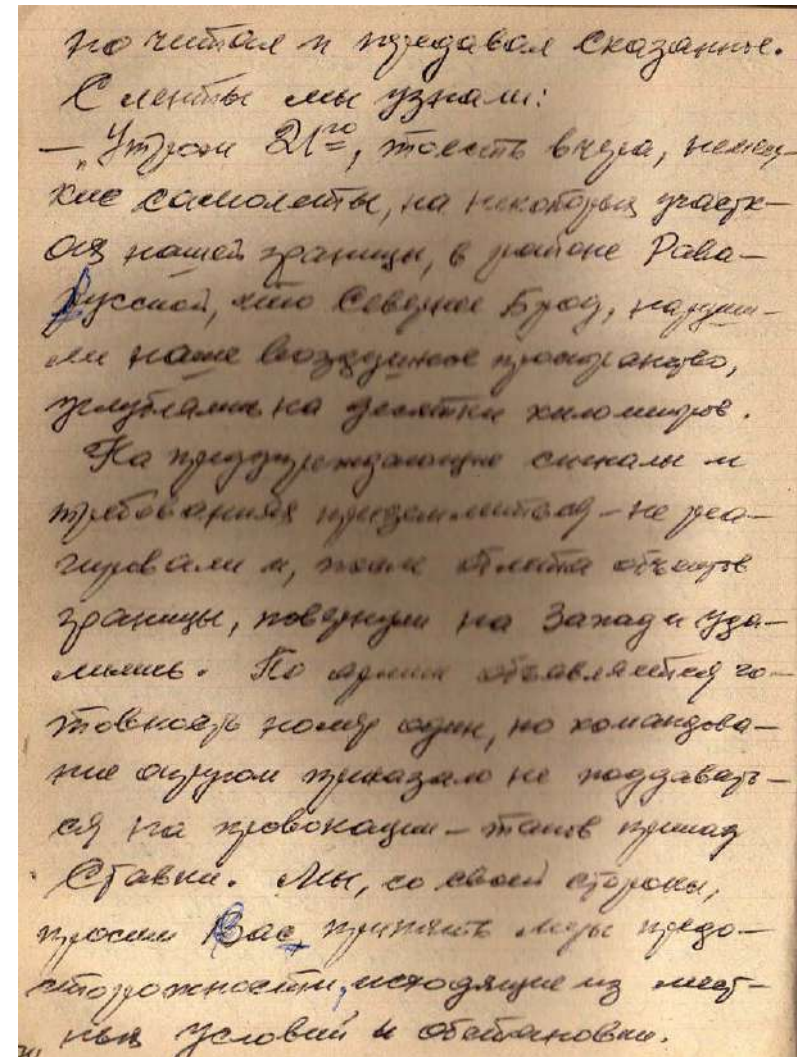 но читал и передавал сказанное.
С ленты мы узнали:
— „Утром 21го, тоесть вчера, немец-
кие самолеты, на некоторых участк-
ах нашей границы, в районе Рава-
Русской, что Севернее Брод, наруши-
ли наше воздушное пространство,
углубляясь на десятки километров.
На предупреждающие сигналы и
требования приземлиться – не реа-
гировали и, после облета объектов
границы, повернули на Запад и уда-
лились. По армии объявляется го-
товность номер один, но командова-
ние округом приказало не поддавать-
ся на провокации – таков приказ
Ставки. Мы, со своей стороны,
просим Вас принять меры предо-
сторожности, исходящие из мест-
ных условий и обстановки.